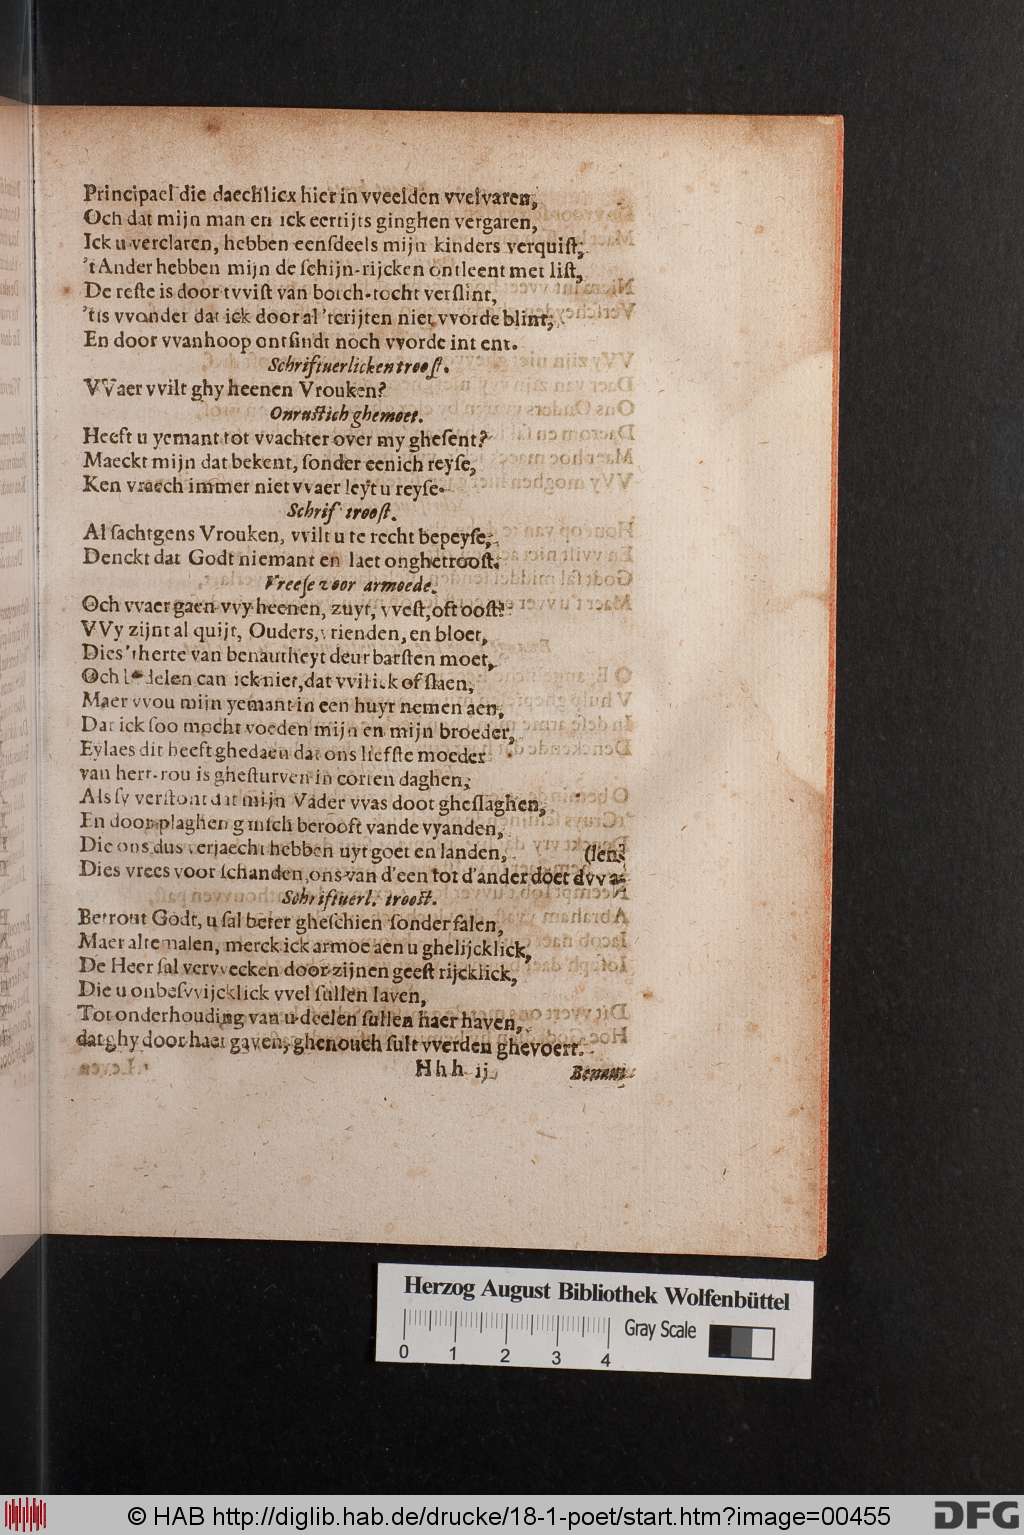 Principael die daechlicx hier in vveelden vvelvaren,
Och dat mijn man en ick eertijts ginghen vergaren,
Ick u verclaren, hebben eenſdeels mijn kinders verquiſt,
'tAnder hebben mijn de ſchijn-rijcken ontleent met liſt,
De reſte is door tvviſt van borch-tocht verſlint,
'tis vvonder dat ick door al 'tcrijten niet vvorde blint,
En door vvanhoop ontſindt noch vvorde int ent.
Schriftuerlicken trooſt.
VVaer vvilt ghy heenen Vrouken?
Onruſtich ghemoet.
Heeft u yemant tot vvachter over my gheſent?
Maeckt mijn dat bekent, ſonder eenich reyſe,
Ken vraech immer niet vvaer leyt u reyſe.
Schrif trooſt.
Al ſachtgens Vrouken, vvilt u te recht bepeyſe,
Denckt dat Godt niemant en laet onghetrooſt.
Vreeſe voor armoede.
Och vvaer gaen vvy heenen, zuyt, vveſt, oft ooſt?
VVy zijnt al quijt, Ouders, vrienden, en bloet,
Dies 'therte van benautheyt deur barſten moet,
Och bedelen can ick niet, dat vvil ick of ſlaen,
Maer vvou mijn yemant in een huyr nemen aen,
Dat ick ſoo mocht voeden mijn en mijn broeder,
Eylaes dit heeft ghedaen dat ons liefſte moeder
van hert-rou is gheſturven in corten daghen,
Als ſy verſtont dat mijn Vader vvas doot gheſlaghen,
En door plaghen g'niſch berooft vande vyanden,
Die ons dus verjaecht hebben uyt goet en landen, (len?
Dies vrees voor ſchanden, ons van d'een tot d'ander doet dvva-
Schriftuerl. trooſt.
Betrout Godt, u ſal beter gheſchien ſonder falen,
Maer altemalen, merck ick armoe aen u ghelijcklick,
De Heer ſal vervvecken door zijnen geeſt rijcklick,
Die u onbeſvvijcklick vvel ſullen laven,
Tot onderhouding van u deelen ſullen haer haven,
dat ghy door haer gaven, ghenouch ſult vverden ghevoert.
Hhh ij
Benaui-
Herzog August Bibliothek Wolfenbüttel
Gray Scale
0 1 2 3 4
© HAB http://diglib.hab.de/drucke/18-1-poet/start.htm?image=00455
DFG